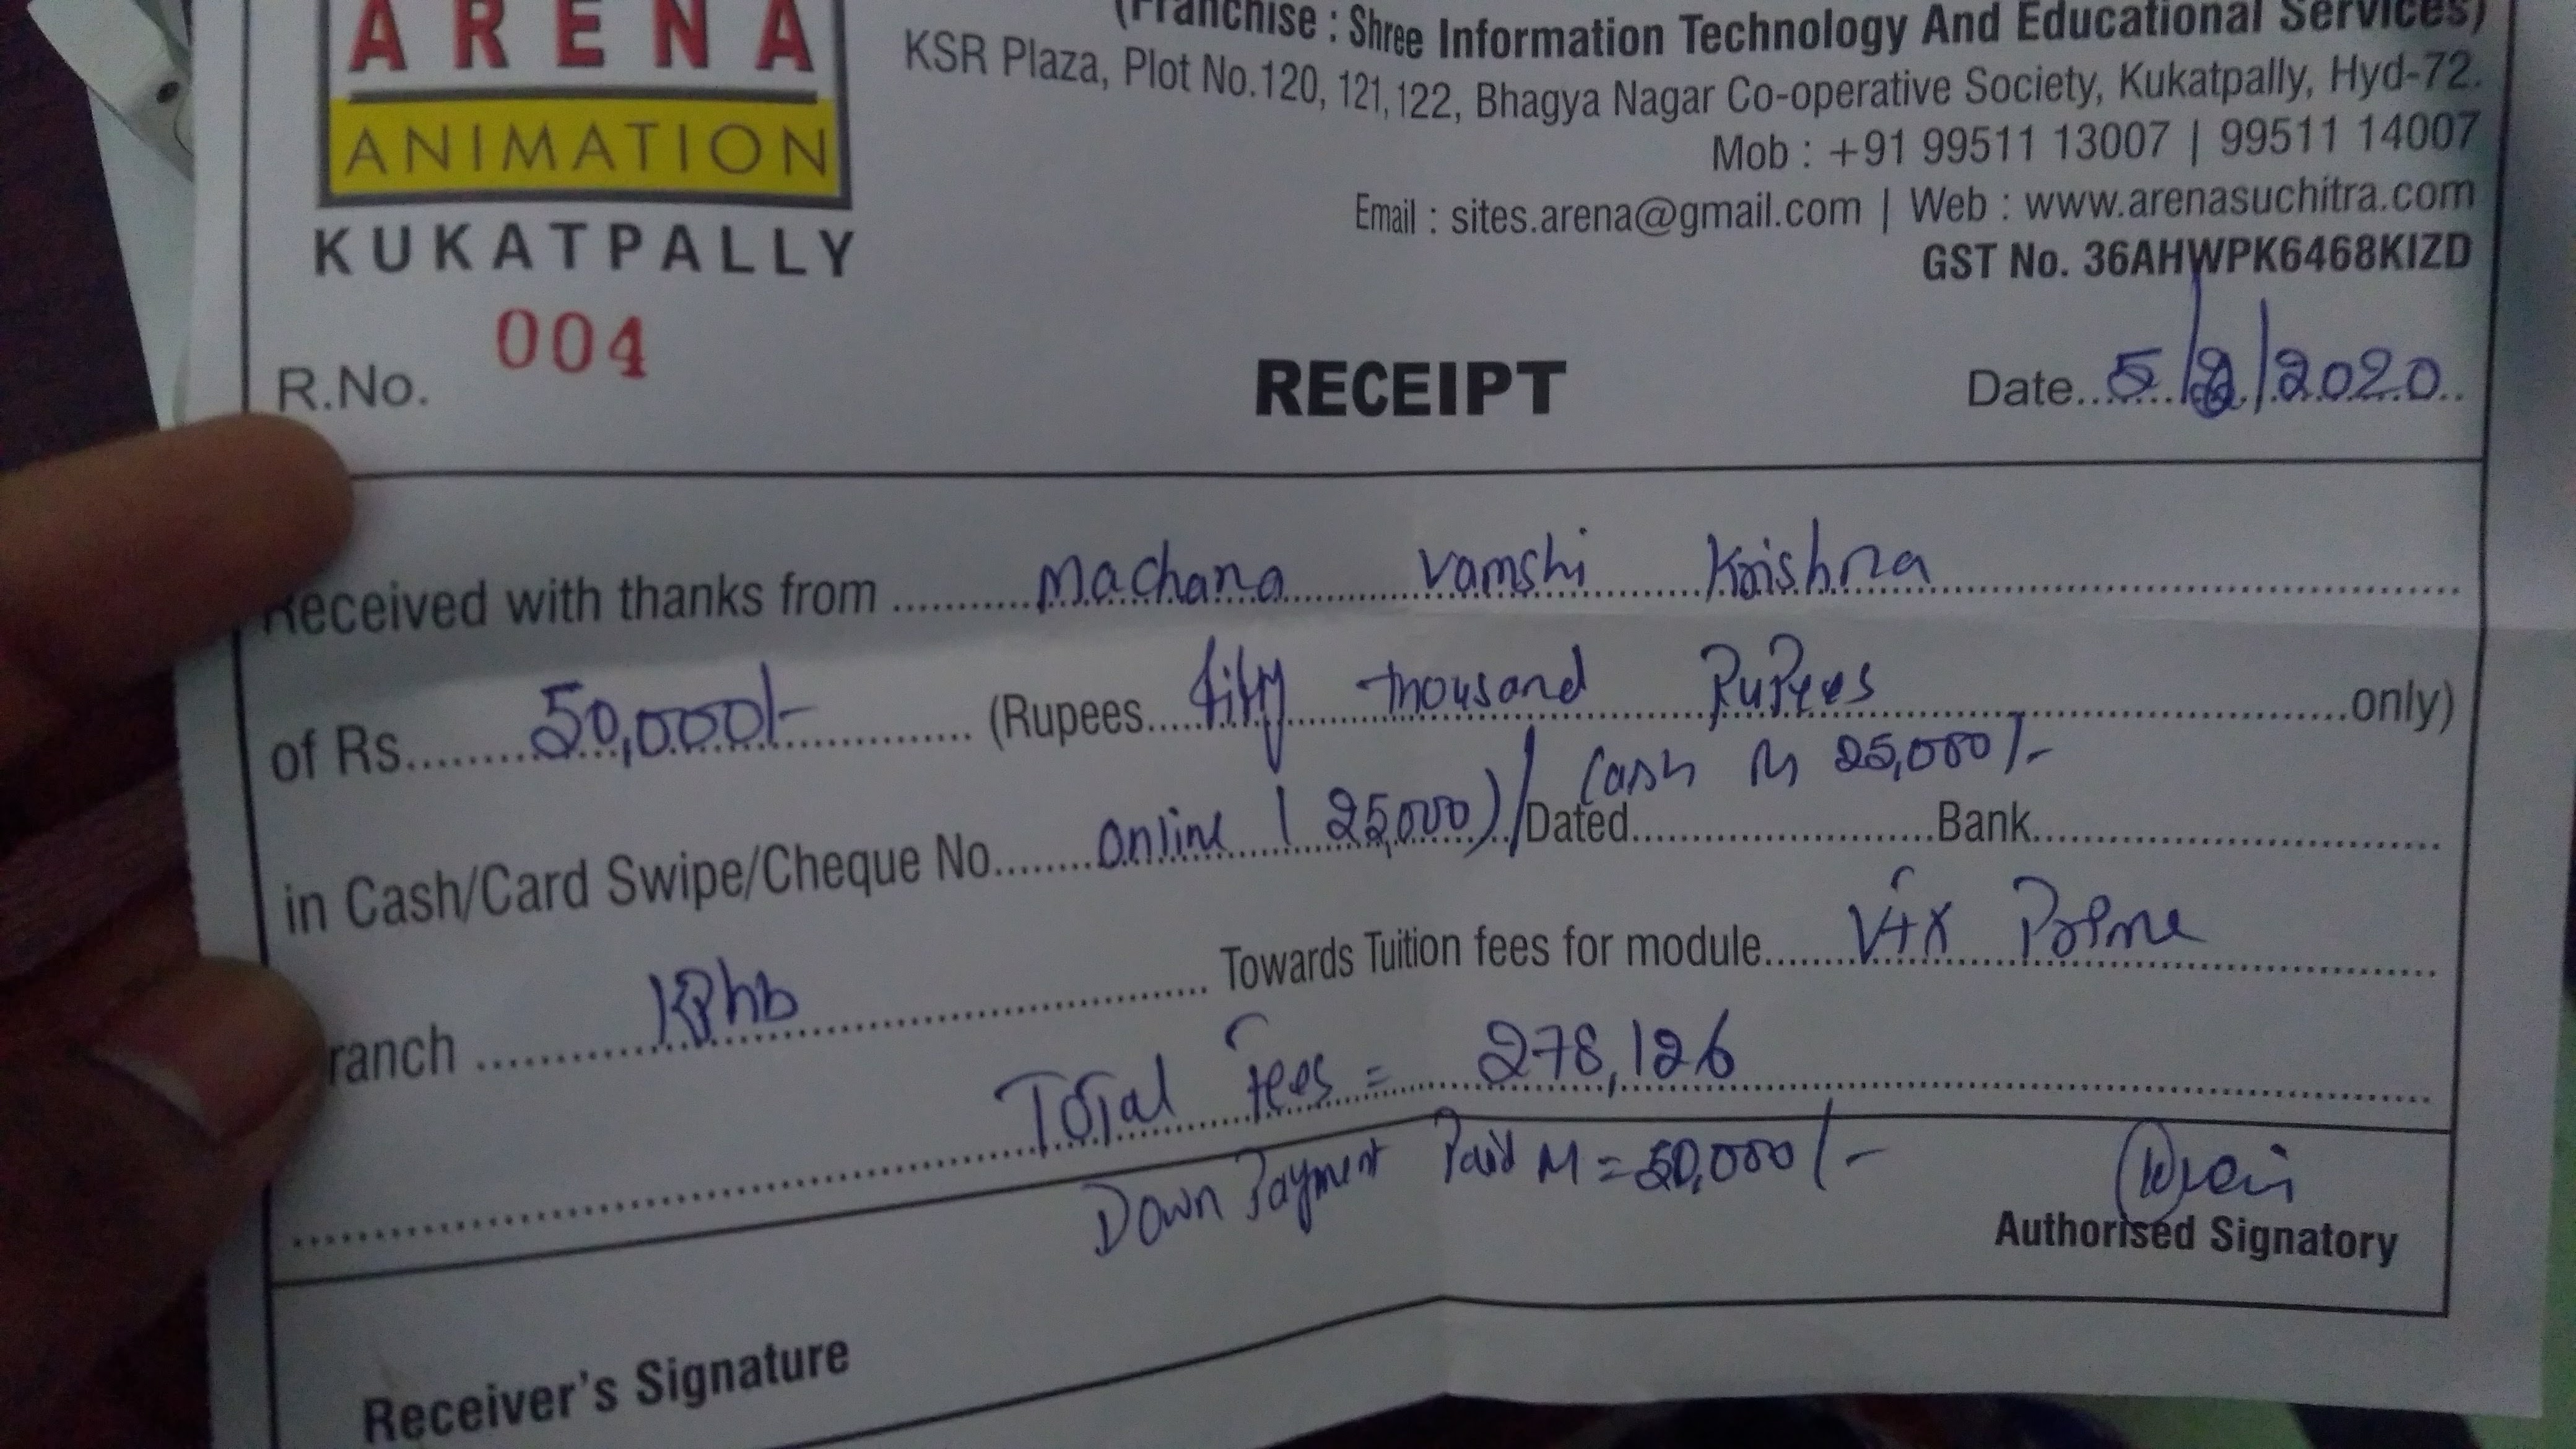 ARENA
ANIMATION
KUKATPALLY
(Franchise : Shree Information Technology And Educational Services)
KSR Plaza, Plot No.120, 121,122, Bhagya Nagar Co-operative Society, Kukatpally, Hyd-72.
Mob : +91 99511 13007 | 99511 14007
Email : sites.arena@gmail.com | Web : www.arenasuchitra.com
GST No. 36AHWPK6468KIZD
R.No. 004
RECEIPT
Date 5/2/2020
Received with thanks from Machana Vamshi Krishna
of Rs. 50,000/- (Rupees fifty thousand Rupees only)
Cash 25,000/-
in Cash/Card Swipe/Cheque No. Online (25,000)/ Dated Bank
ranch KPhb Towards Tuition fees for module VFX Prime
Total Fees = 278,126
Down Payment Paid = 50,000/-
Authorised Signatory
Receiver's Signature